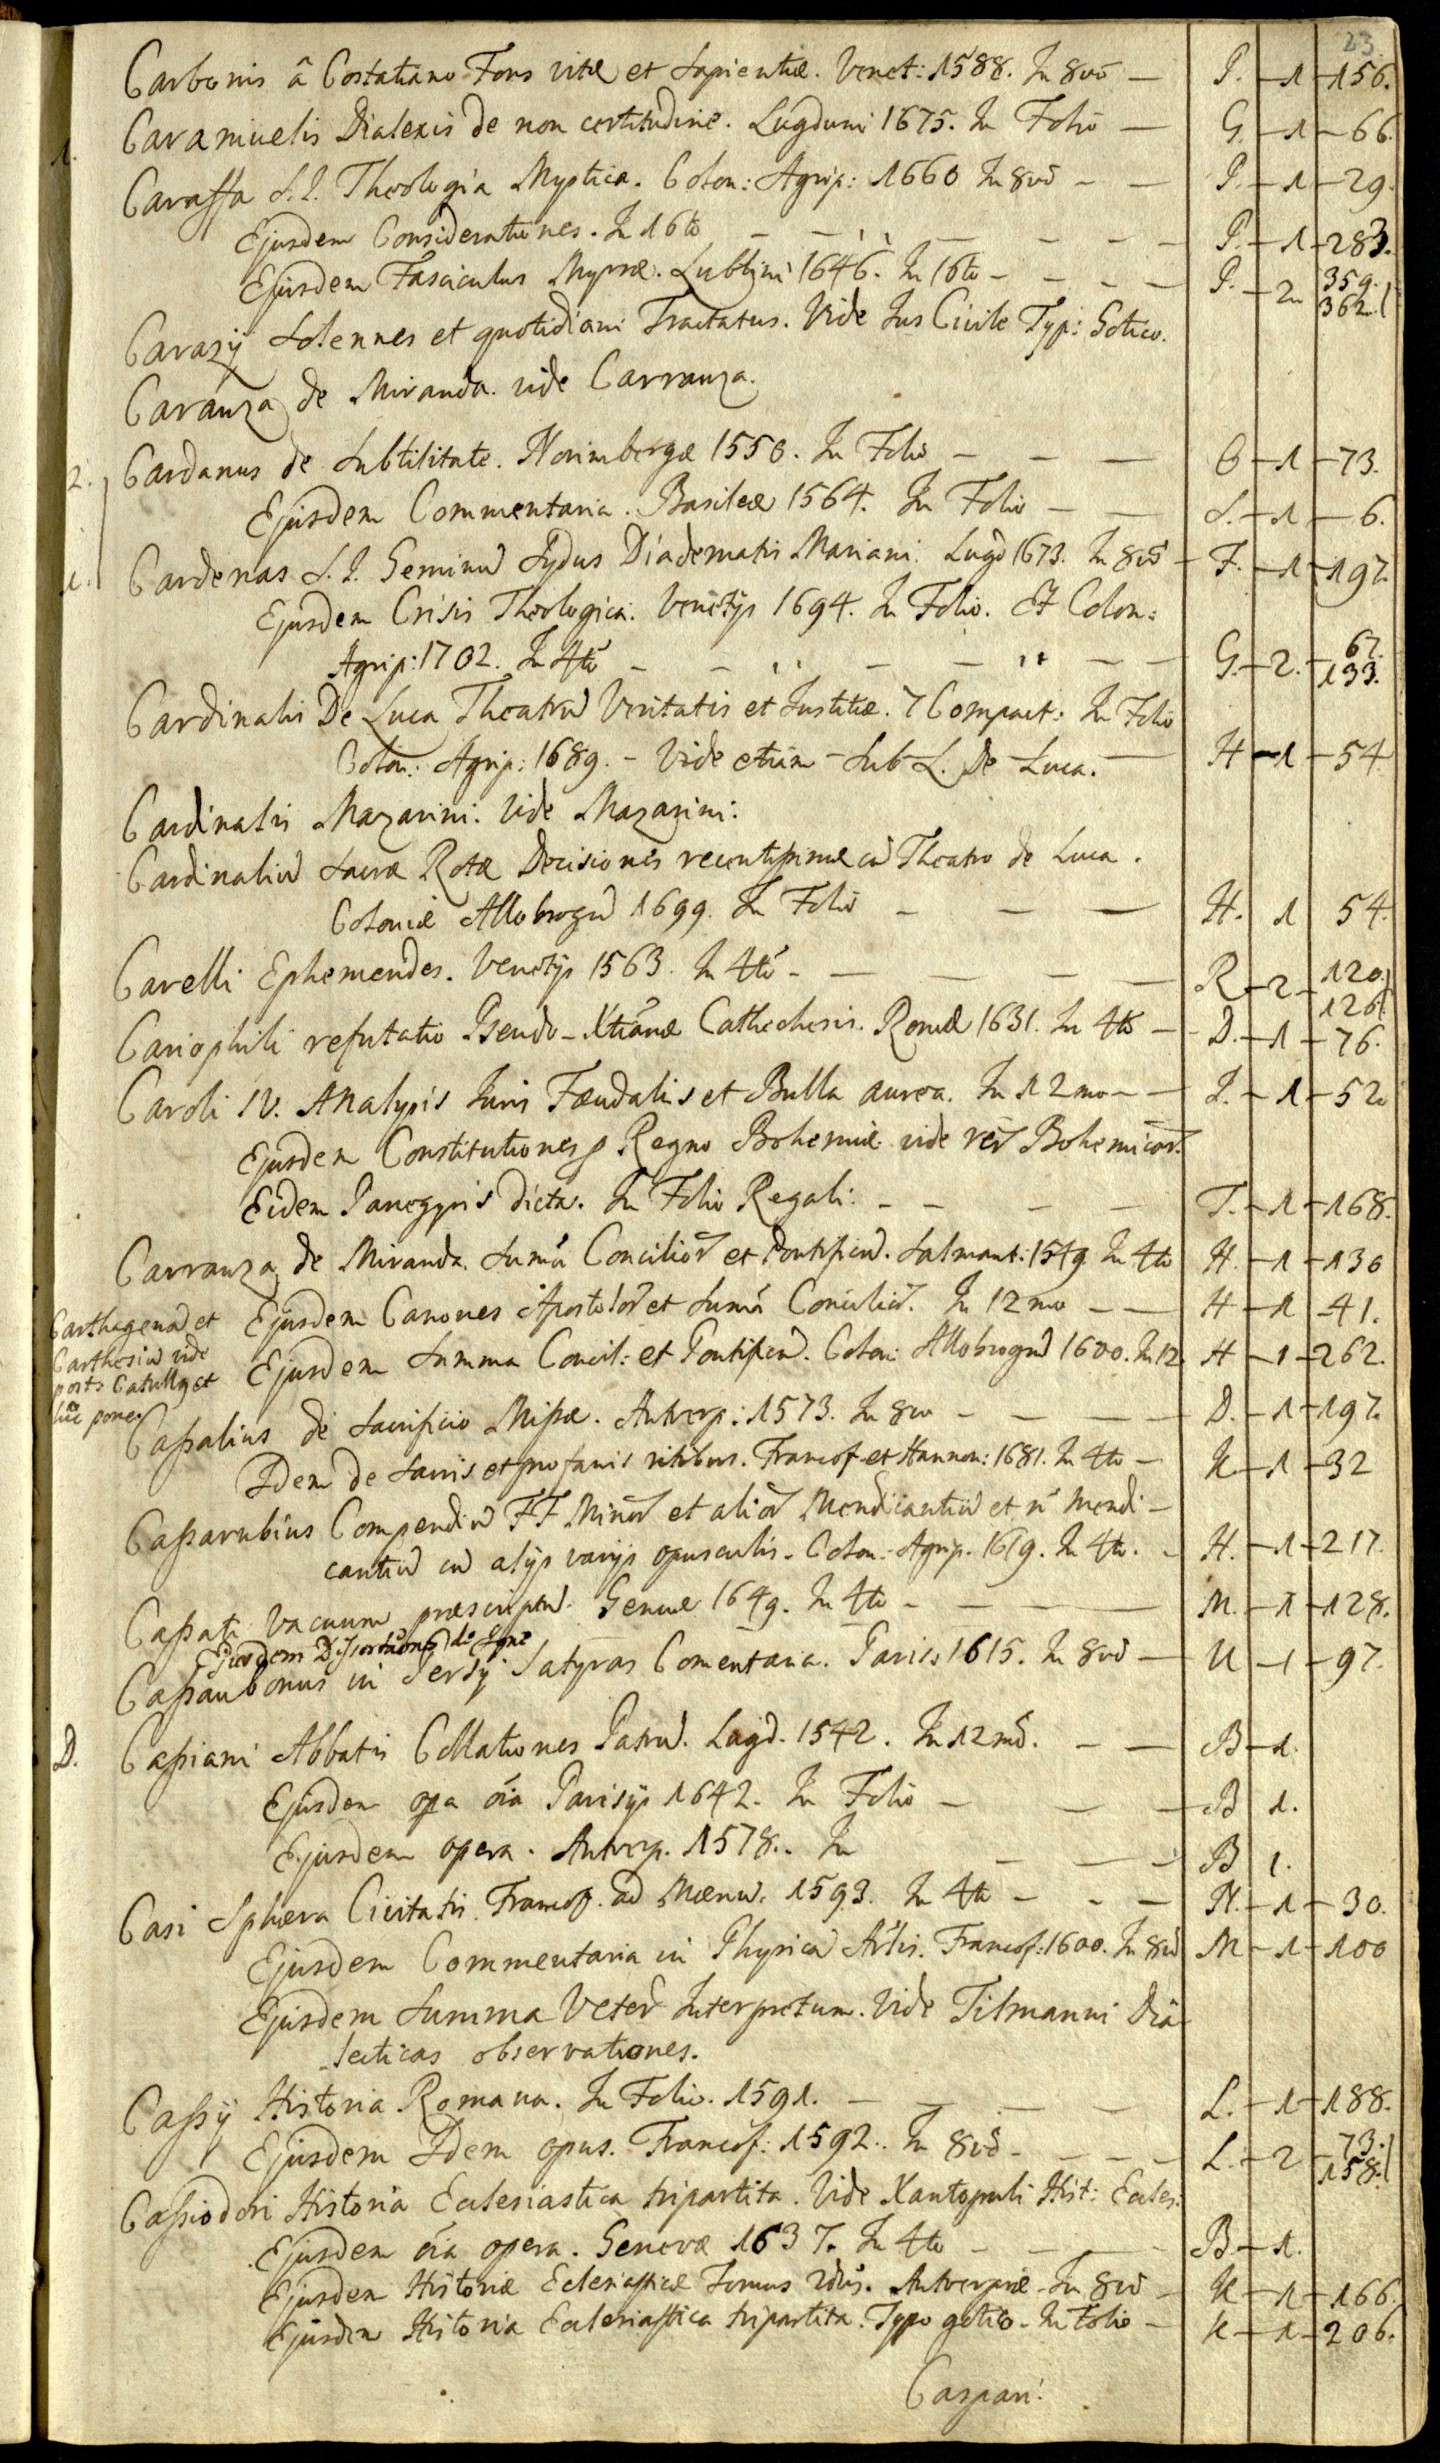 23.
Carbonis â Costatiano Fons vitæ et Sapientiæ. Venet: 1588. In 8vo — P. — 1 — 156.
Caramuelis Dialexis de non certitudine. Lugduni 1675. In Folio — G. — 1 — 66.
1. Caraffa S.I. Theologia Mystica. Colon: Agrip: 1660 In 8vo — — P. — 1 — 29.
Ejusdem Considerationes. In 16to — — — — — — P. — 1 — 283.
Ejusdem Fasciculus Myrrhæ. Lublini 1646. In 16to — — — — P. — 2 — 359. 362.
Carazÿ Solennes et quotidiani Tractatus. Vide Jus Civile Typ: Gotico.
Caranza de Miranda. vide Carranza.
2. Cardanus de Subtilitate. Norimbergæ 1550. In Folio — — — O — 1 — 73.
Ejusdem Commentaria. Basileæ 1564. In Folio — — S. — 1 — 6.
1. Cardenas S.I. Geminũ Sydus Diadematis Mariani. Lugd 1673. In 8vo — F. — 1 — 197.
Ejusdem Crisis Theologica. Venetÿs 1694. In Folio. Et Colon:
Agrip: 1702. In 4to — — — — — — G. — 2. — 67. 133.
Cardinalis De Luca Theatrũ Veritatis et Justitiæ. 7 Compact: In Folio
Colon: Agrip: 1689. — Vide etiam — Sub L. De Luca. — H — 1 — 54
Cardinalis Mazarini. Vide Mazarini.
Cardinaliũ Sacræ Rotæ Decisiones recentissimæ cũ Theatro de Luca.
Coloniæ Allobrogũ 1699. In Folio — — — H. 1 54.
Carelli Ephemerides. Venetÿs 1563. In 4to — — — — — R — 2 — 120. 126.
Cariophili refutatio Pseudo-Xtianæ Cathechesis. Romæ 1631. In 4to — D. — 1 — 76.
Caroli IV. Analysis Juris Fæudalis et Bulla aurea. In 12mo — — I. — 1 — 52
Ejusdem Constitutiones Regno Bohemiæ vide rer̃ Bohemicar̃.
Eidem Panegyris dicta. In Folio Regali. — — — — T. — 1 — 168.
Carranza de Miranda. Suma Concilior̃ et Pontificũ. Salmant: 1549 In 4to H. — 1 — 130
Ejusdem Canones Apostolor̃ et Suma Concilior̃. In 12mo — — H — 1 41.
Ejusdem Summa Concil: et Pontificũ. Colon: Allobrogũ 1600. In 12 H — 1 — 262.
Carthagena et
Carthesiũ vide
post Catullũ et
huc pone.
Cassalius de Sacrificio Missæ. Antverp: 1573. In 8vo — — — — D. — 1 — 197.
Idem de sacris et profanis ritibus. Francof. et Hannov: 1681. In 4to — K — 1 — 32
Cassarubius Compendiũ FF. Minor̃ et alior̃ Mendicantiũ et ñ Mendi-
cantiũ cũ alÿs varÿs opusculis. Colon: Agrip. 1619. In 4to. — H. — 1 — 217.
Cassati Vacuum præscriptũ. Genuæ 1649. In 4to — — — — M. — 1 — 128.
Ejusdem Dissertationes de Igne
Cassaubonus in Persÿ Satyras Comentaria. Paris: 1615. In 8vo — U — 1 — 97.
D. Cassiani Abbatis Collationes Patrũ. Lugd. 1542. In 12mo. — — B — 1.
Ejusdem opa oĩa Parisÿs 1642. In Folio — — — B 1.
Ejusdem opera. Antverp. 1578. In — — — B 1.
Casi Sphæra Civitatis. Francof. ad Mænũ. 1593. In 4to — — — N. — 1 — 30.
Ejusdem Commentaria in Physicã Artis. Francof: 1600. In 8vo M — 1 — 100
Ejusdem Summa Veter̃ Interpretum. Vide Tilmanni Dia-
lecticas observationes.
Cassÿ Historia Romana. In Folio. 1591. — — — — L. — 1 — 188.
Ejusdem Idem opus. Francof: 1592. In 8vo — — — — L. — 2 — 73. 158.
Cassiodori Historia Ecclesiastica tripartita. Vide Xantopuli Hist: Eccles:
Ejusdem oĩa opera. Genevæ 1637. In 4to — — — — B — 1.
Ejusdem Historiæ Eclesiasticæ Tomus 2dus. Antverpiæ. In 8vo — K — 1 — 166.
Ejusdem Historia Ecclesiastica tripartita. Typo gotico. In Folio — K — 1 — 206.
Caspari